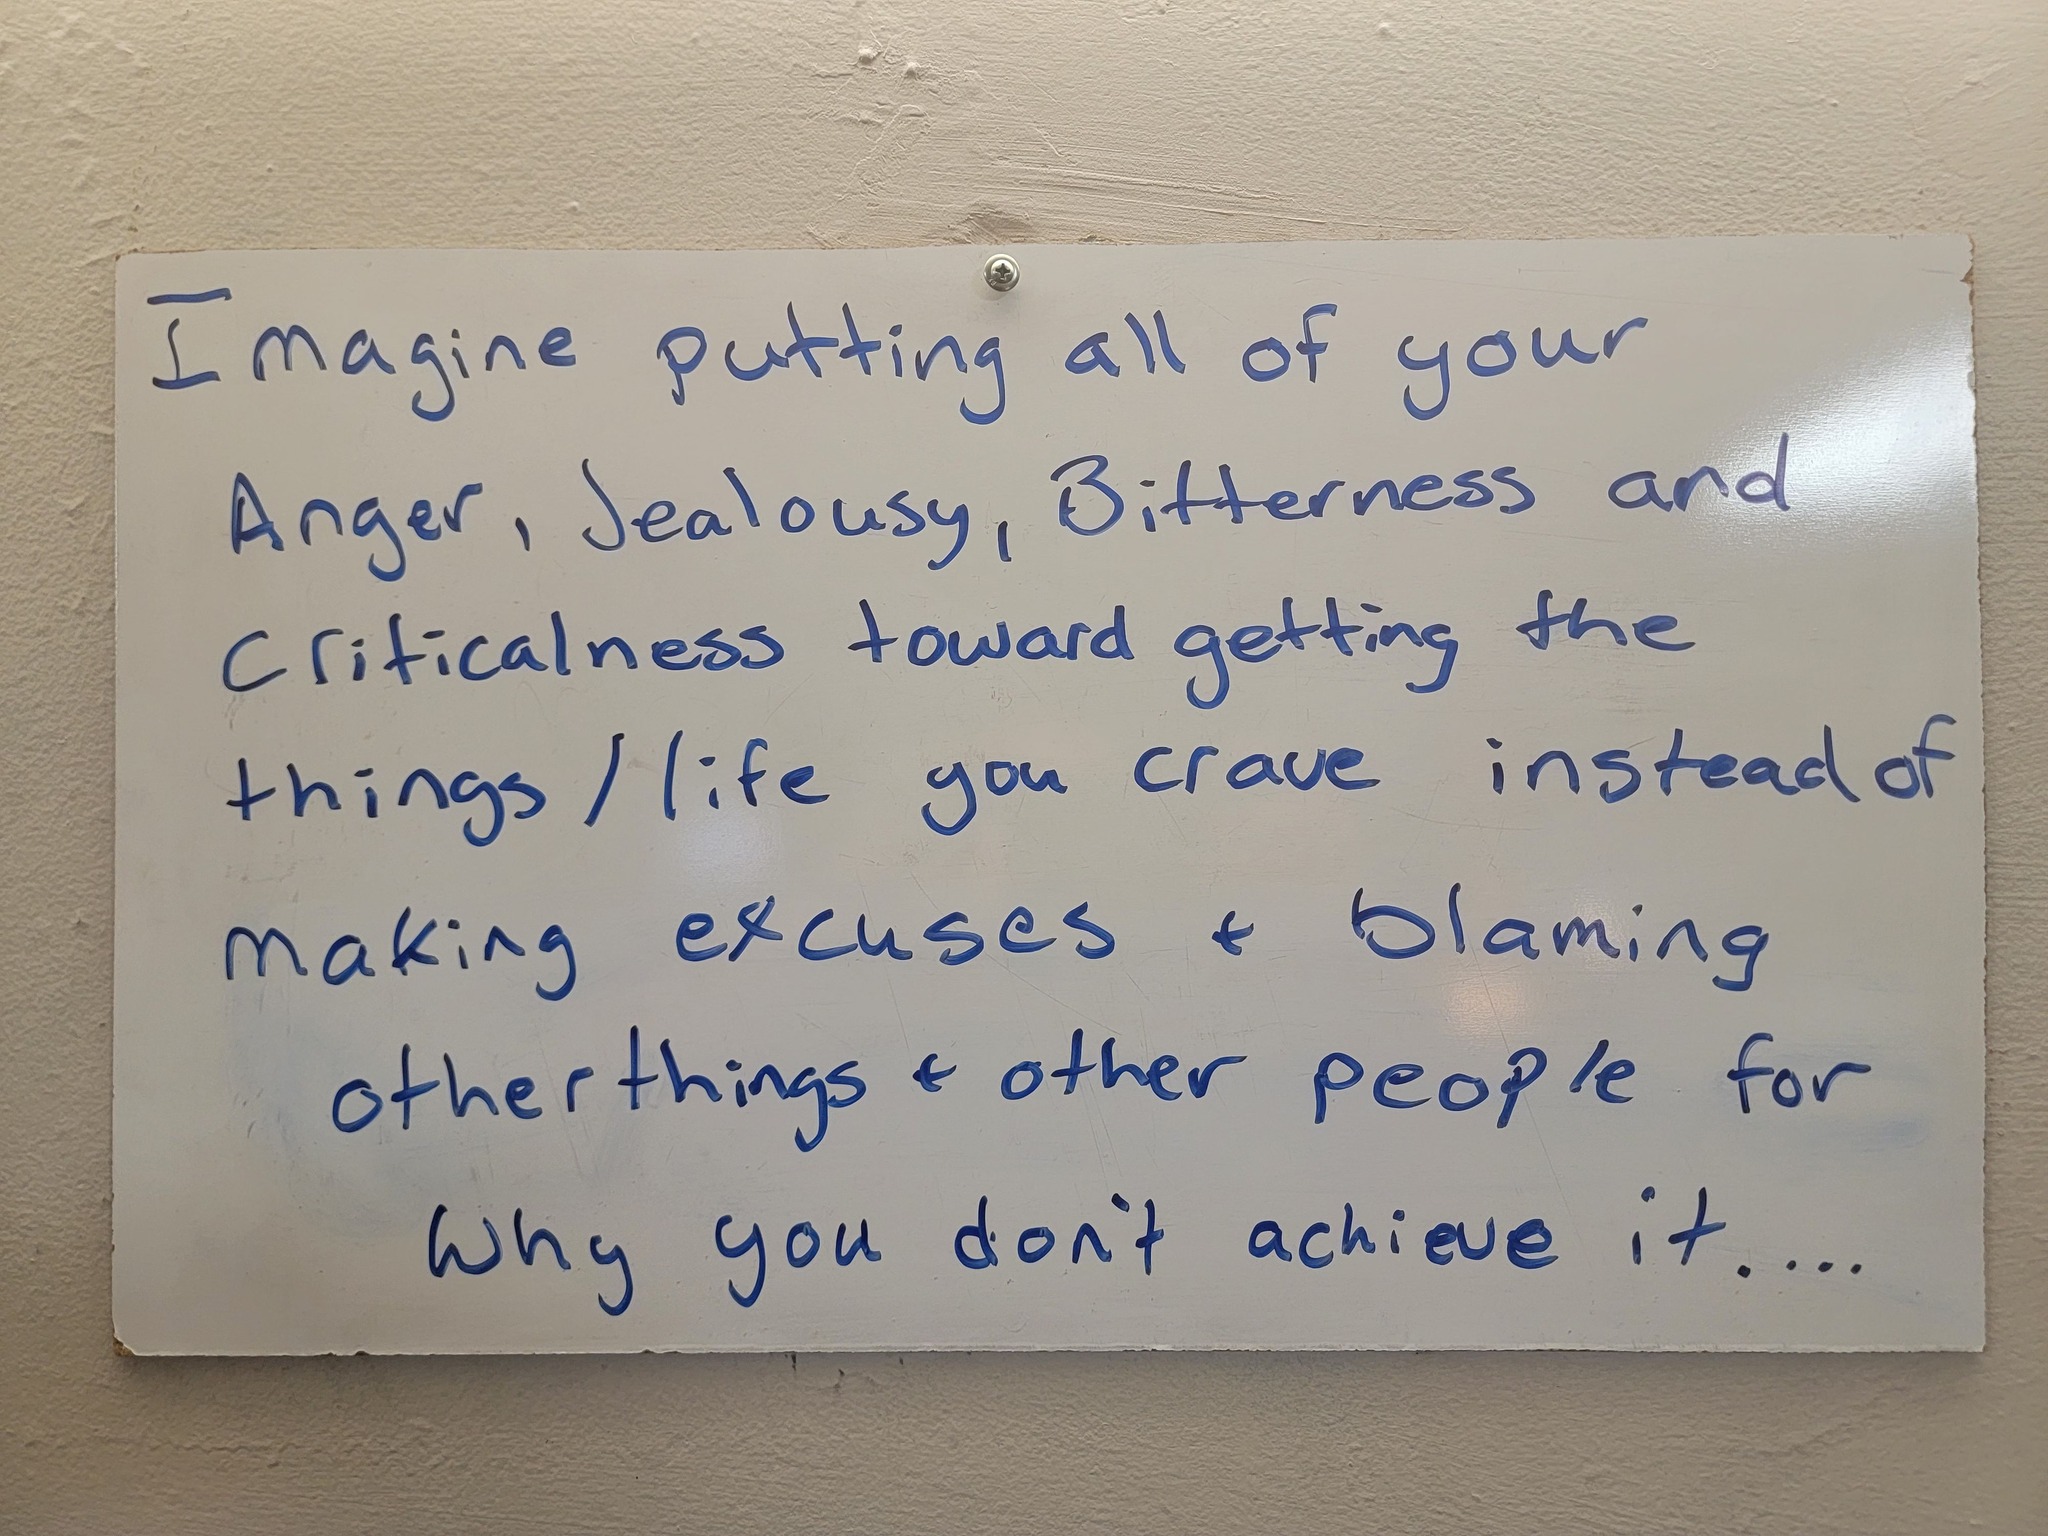 Imagine putting all of your
Anger, Jealousy, Bitterness and
Criticalness toward getting the
things/life you crave instead of
making excuses + blaming
other things + other people for
Why you don't achieve it....